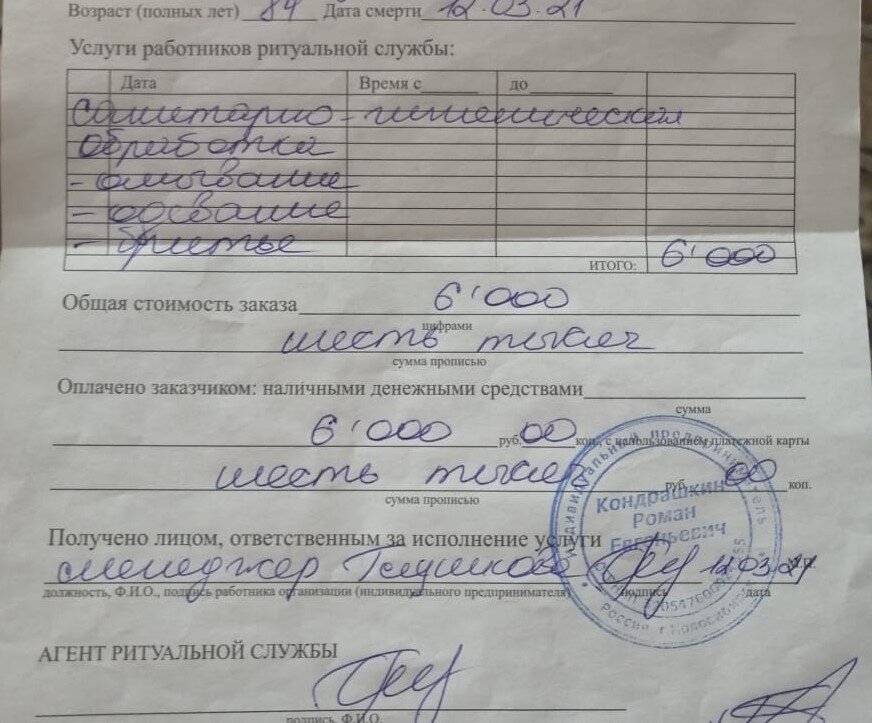 Возраст (полных лет) 84 Дата смерти 12.03.21
Услуги работников ритуальной службы:
Дата Время с до
Санитарно-гигиеническая
обработка
- омывание
- одевание
- бритье
ИТОГО: 6'000
Общая стоимость заказа 6'000
цифрами
шесть тысяч
сумма прописью
Оплачено заказчиком: наличными денежными средствами
сумма
6'000 руб, 00 коп., с использованием платежной карты
шесть тысяч руб, 00 коп.
сумма прописью
индивидуальный предприниматель
Кондрашкин
Роман
Евгеньевич
Россия г. Новосибирск
Получено лицом, ответственным за исполнение услуги
менеджер 12.03.21
должность, Ф.И.О., подпись работника организации (индивидуального предпринимателя) подпись дата
АГЕНТ РИТУАЛЬНОЙ СЛУЖБЫ
подпись, Ф.И.О.